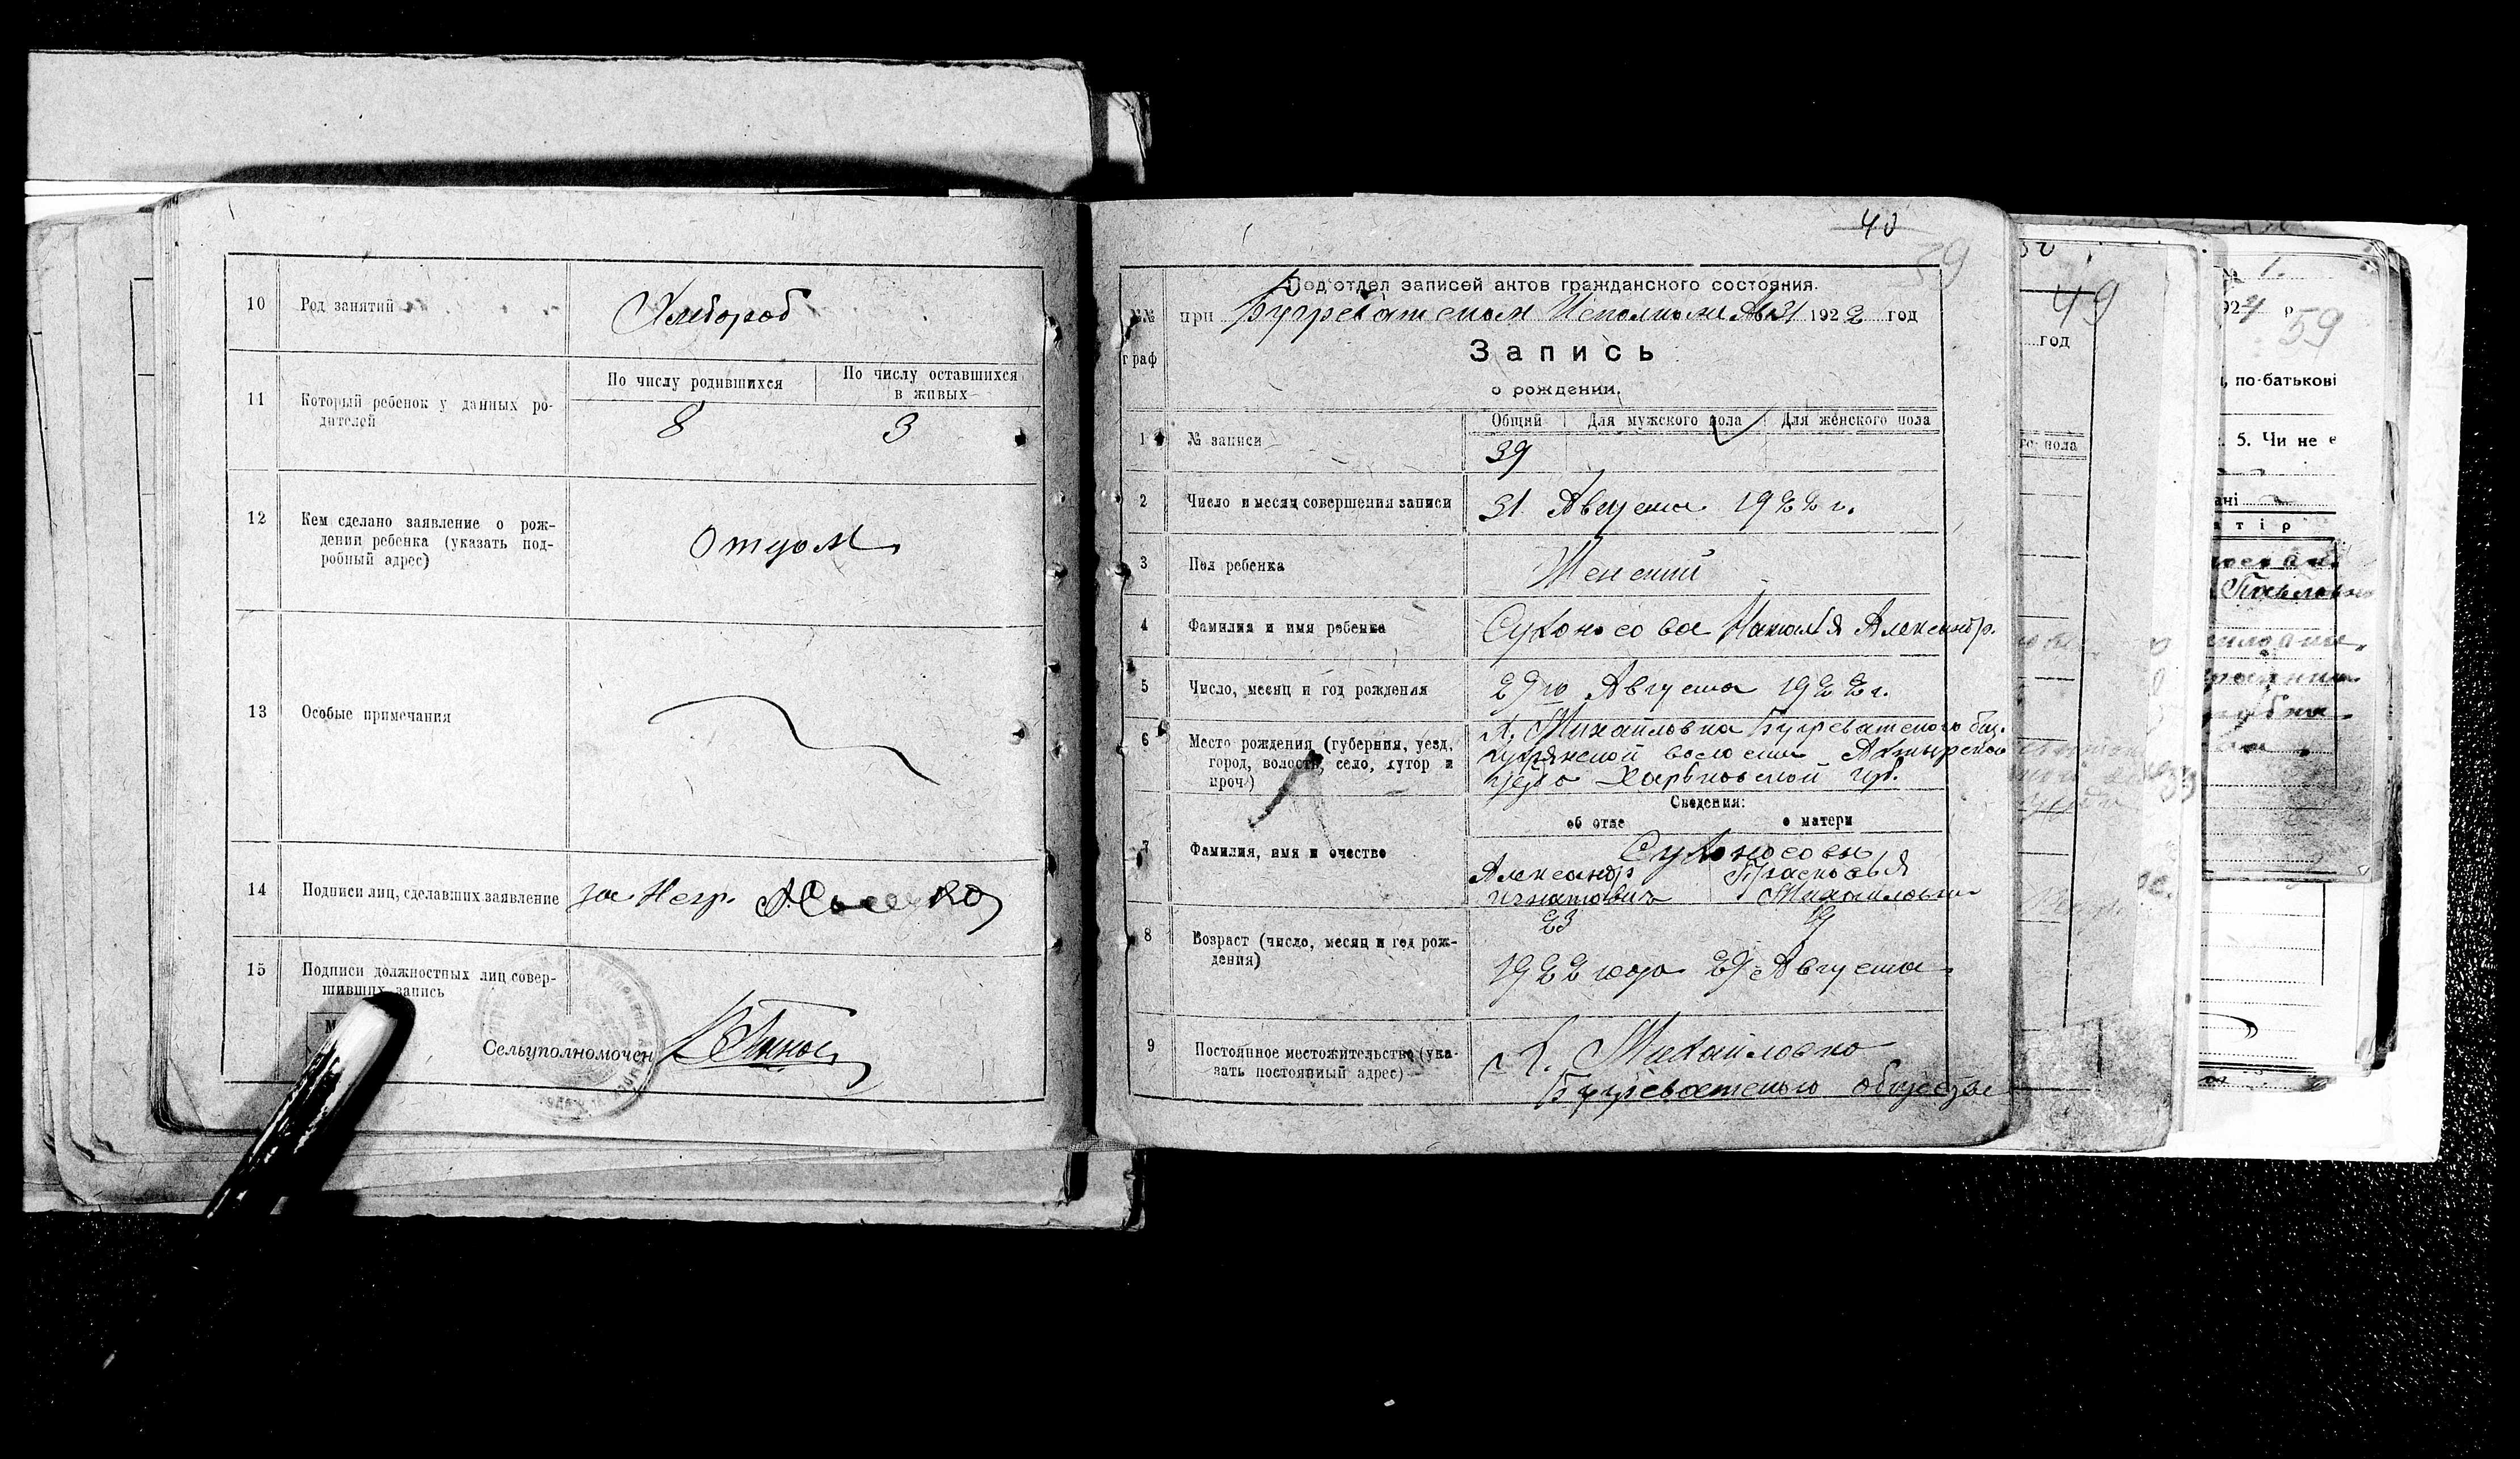 10 Род занятий Хлебороб
11 Который ребенок у данных ро-
дителей
По числу родившихся По числу оставшихся
в живых
8 3
12 Кем сделано заявление о рож-
дении ребенка (указать под-
робный адрес)
Отцом
13 Особые примечания
14 Подписи лиц, сделавших заявление за Негр.
15 Подписи должностных лиц совер-
шивших запись
Сельуполномочен
40
39
Под'отдел записей актов гражданского состояния.
№№ при Бугреватском Исполкоме № 31 1922 год
граф
Запись
о рождении.
Общий Для мужского пола Для женского пола
1 № записи
39
2 Число и месяц совершения записи 31 Августа 1922 г.
3 Пол ребенка Женский
4 Фамилия и имя ребенка Сухоносова Наталия Александр.
5 Число, месяц и год рождения 29го Августа 1922 г.
6 Место рождения (губерния, уезд,
город, волость, село, хутор и
проч.)
х. Михайловка Бугреватского общ.
волости Ахтырского
уезда Харьковской губ.
Сведения:
об отце о матери
7 Фамилия, имя и очество Сухоносовы
Александр Прасковья
Игнатович Михайловна
23 19
8 Возраст (число, месяц и год рож-
дения)
1922 года 29 Августа
9 Постоянное местожительство (ука-
зать постоянный адрес)
х. Михайловка
Бугреватского общества
49
год
пола
№ 1.
1924 р
59
, по-батькові
5. Чи не є